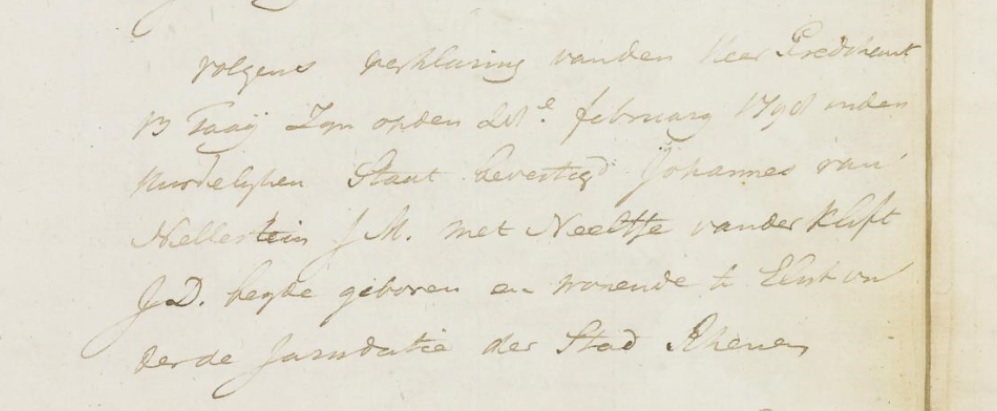 volgens verklaring vanden Heer Predikant
Taaij Zyn opden februarij 1798 inden
huwelyken Staat bevestigd Johannes van
Nellestein J M. met Neeltje vander Kluft
J D. beyde geboren en wonende te Elst on
derde Jurisdatie der Stad Rhenen